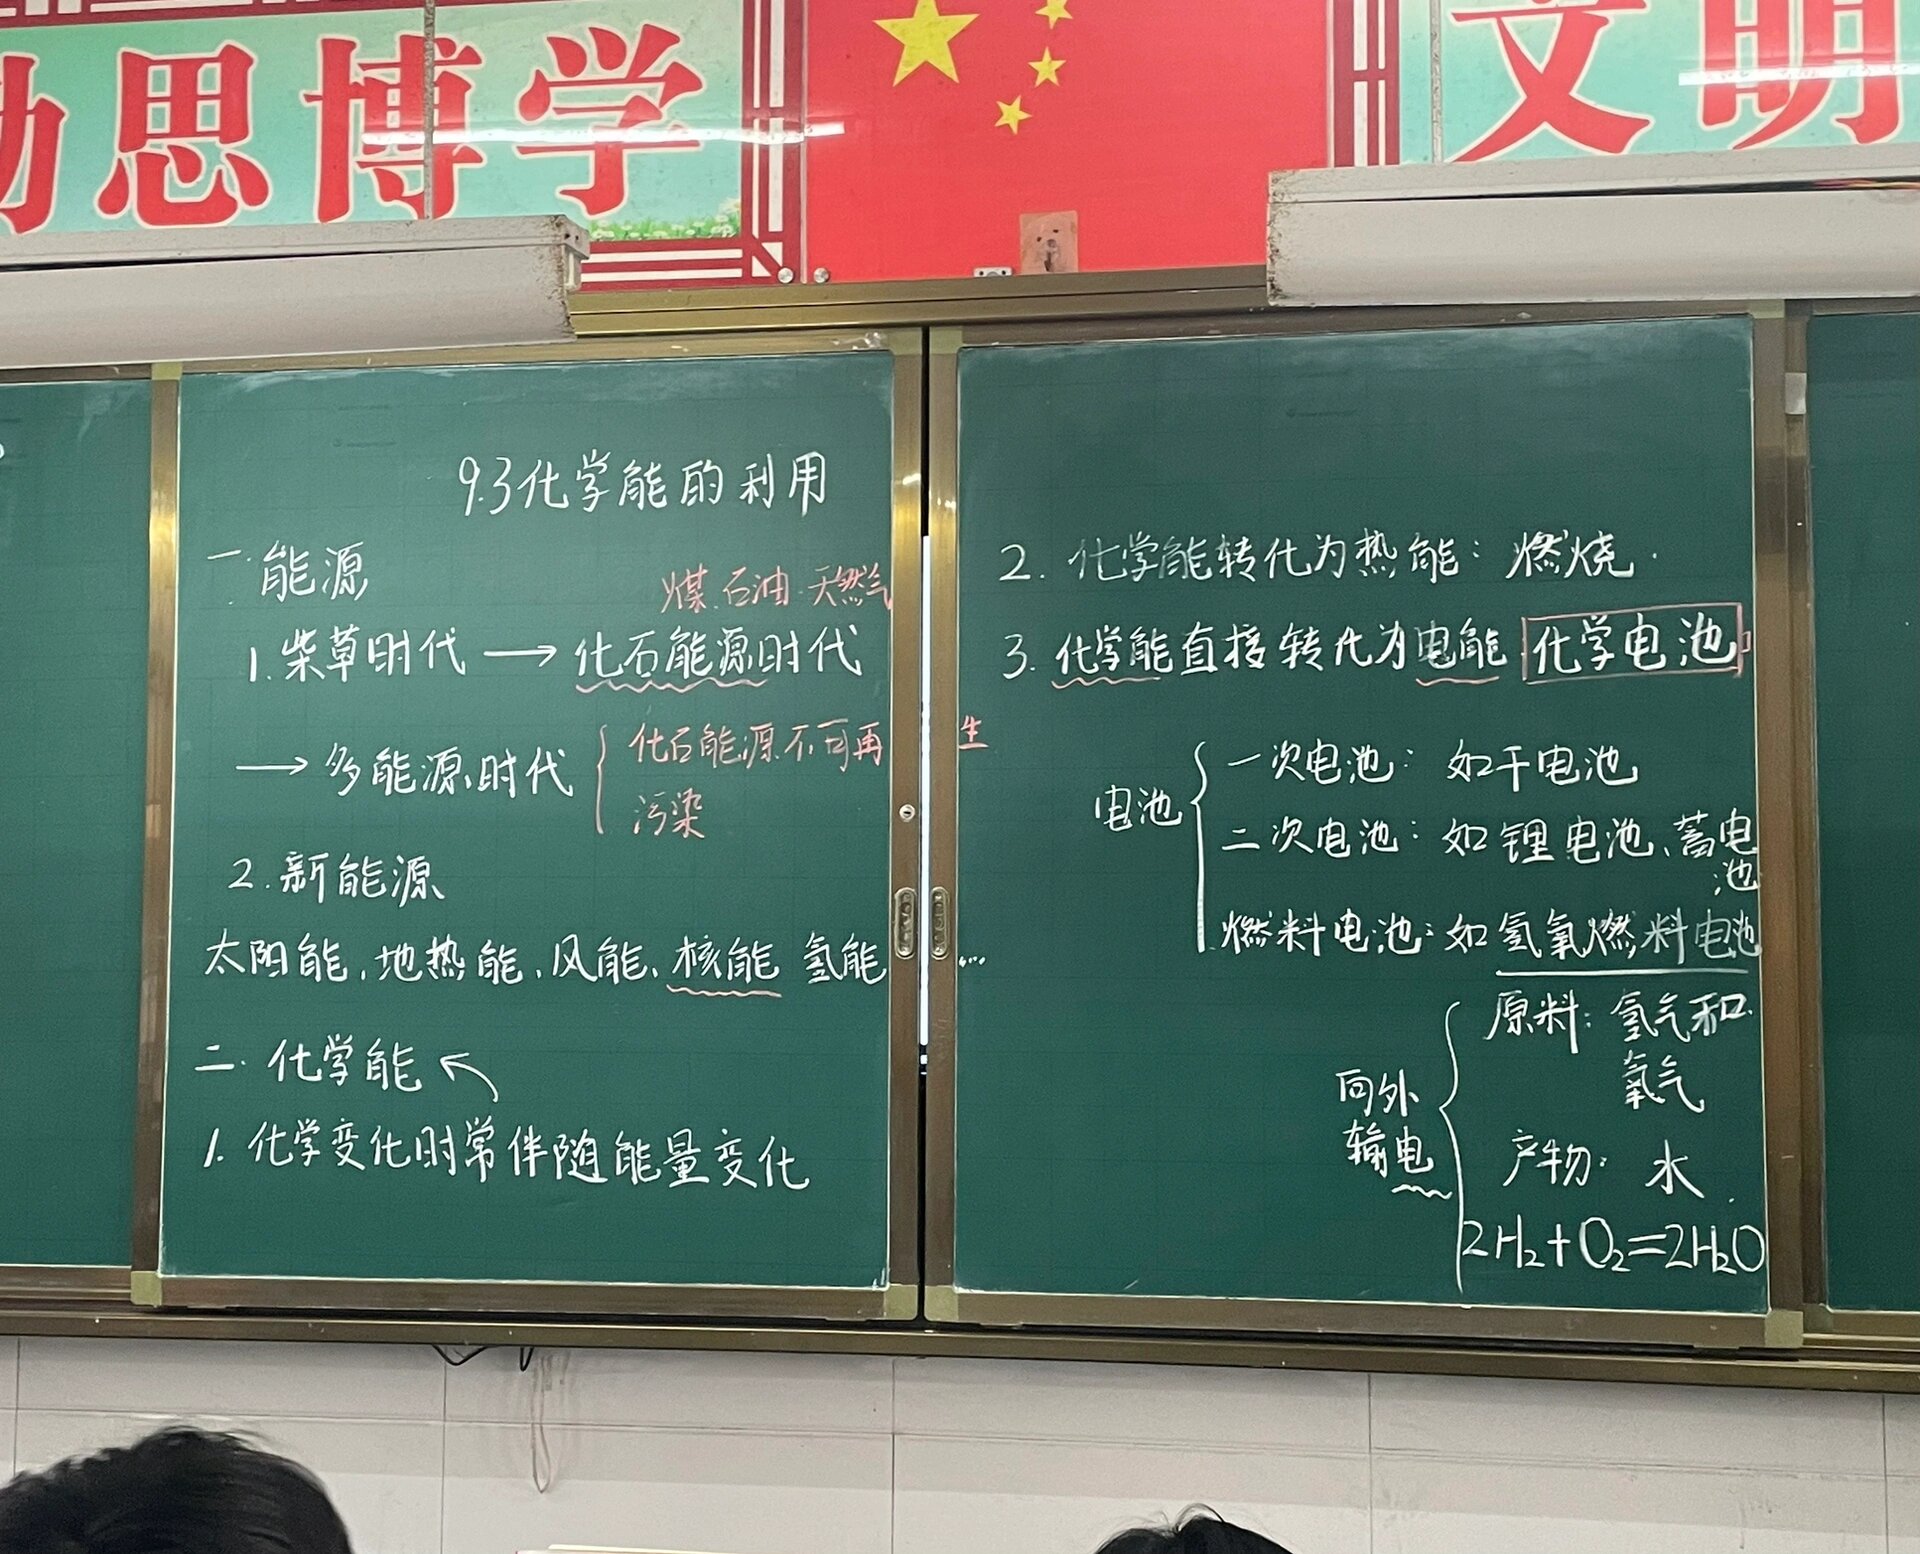 勤思博学
文明
9.3化学能的利用
一.能源
煤.石油.天然气
1.柴草时代→化石能源时代
→多能源时代
化石能源不可再生
污染
2.新能源
太阳能、地热能、风能、核能 氢能…
二.化学能
1.化学变化时常伴随能量变化
2.化学能转化为热能:燃烧.
3.化学能直接转化为电能 化学电池
电池
一次电池:如干电池
二次电池:如锂电池、蓄电池
燃料电池:如氢氧燃料电池
向外输电
原料:氢气和氧气
产物:水.
2H₂+O₂=2H₂O